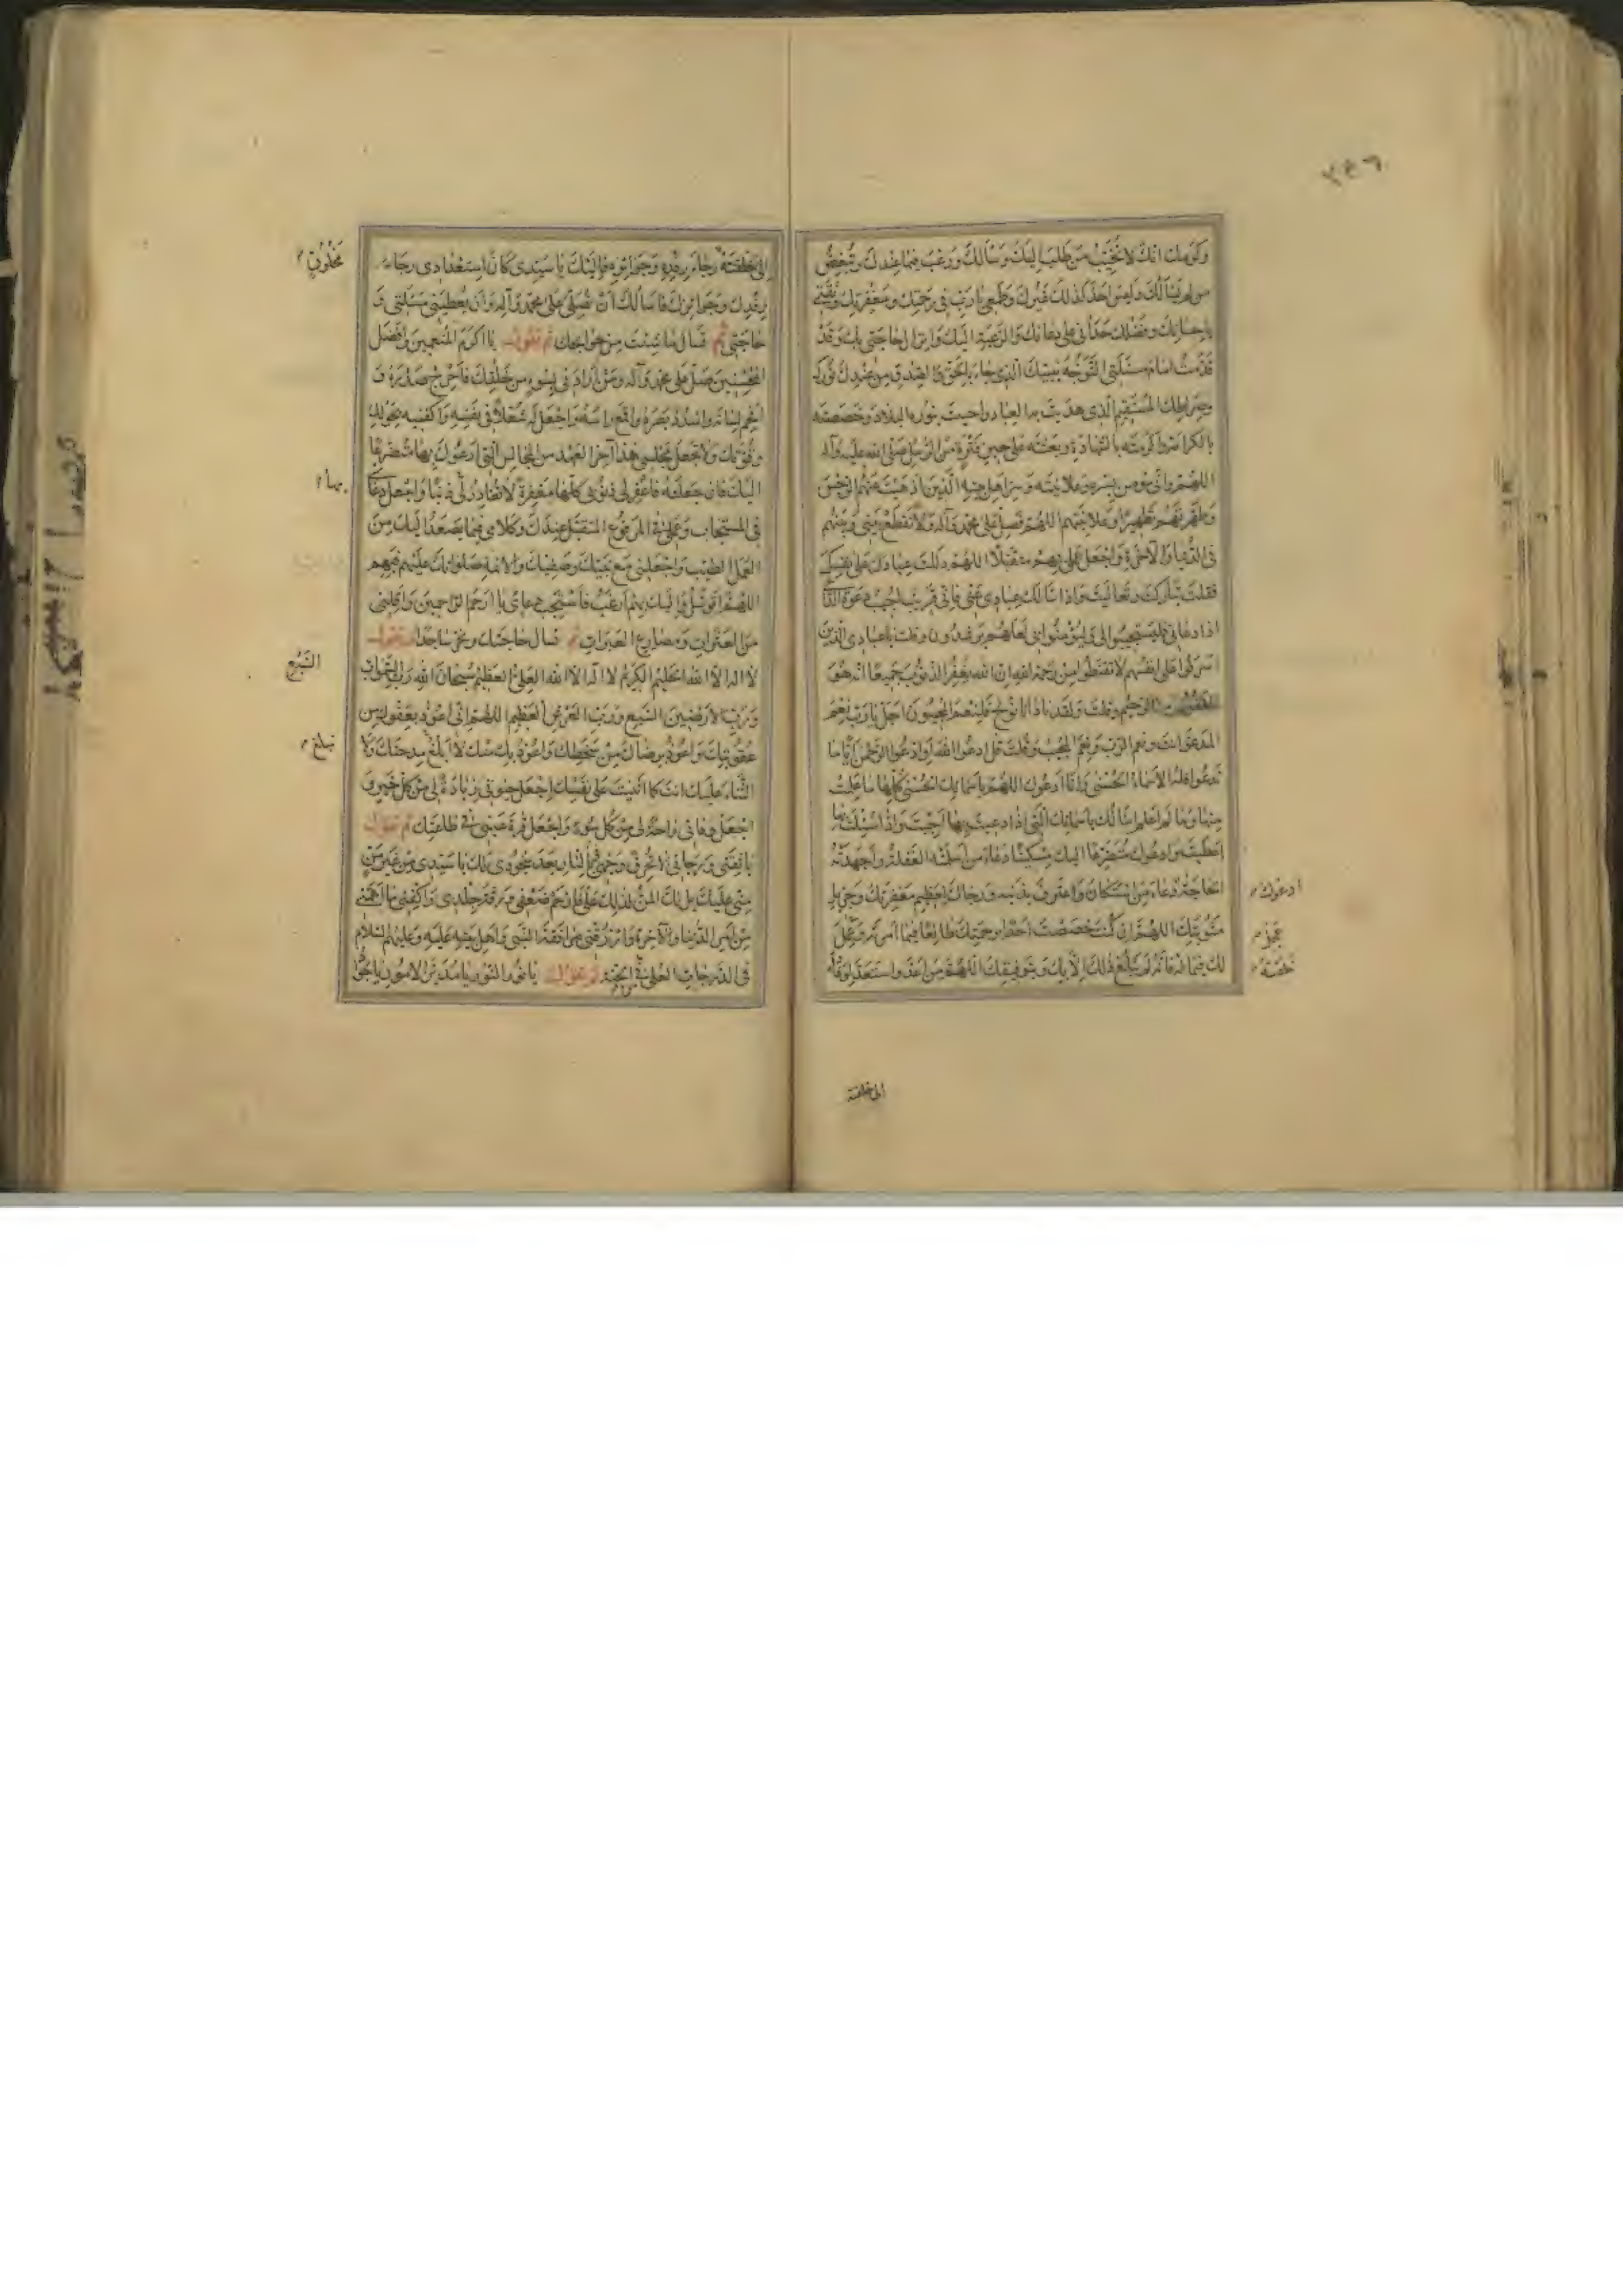 وَكَرَمِك انّكَ لا تُخَيِّبُ مَن طَلَبَ اِلَيكَ وَسَألَكَ وَرَغِبَ فيما عِندكَ وَتُبغِضُ
مَن لم يَسألكَ وليسَ احدٌ كذلكَ غَيرُكَ وَطَمَعي يا رَبِّ في رَحمتِكَ وَمَغفِرَتِكَ وثِقَتي
باِحسانِكَ وفضلِكَ حَداني على دعائكَ وَالرّغبةِ اليكَ وَانزالِ حاجَتي بكَ وَقَد
قَدَّمتُ امامَ مَسئلتي التَّوَجُّهَ بِنَبيّكَ الّذي جاءَ بالحَقِّ وَالصِّدقِ مِن عِندِكَ وَنُورِكَ
وصِراطِكَ المُستقيمِ الّذي هَدَيتَ به العِبادَ واحييتَ بنوره البِلادَ وخَصَصتَه
بالكرامَة واكرمتَه بالشّهادَةِ وبَعثتَه على حينِ فَترَةٍ منَ الرُّسُلِ صلّى الله عليه وآله
اللهمّ وانّي مؤمن بسِرّه وعلانيَته وسِرّ اهلِ بيته الّذينَ اذهبتَ عنهُم الرّجسَ
وطَهّرتهُم تَطهيراً وعلانيَتهم اللهمّ فصلّ على محمّد وآله ولا تقطَع بَيني وبَينهُم
في الدّنيا والآخرةِ وَاجعَل عملي بهم متقبّلاً اللهمّ دَللتَ عبادكَ على نفسِكَ
فقلتَ تبارَكتَ وتعاليتَ واذا سألكَ عبادي عنّي فانّي قريبٌ اُجيبُ دعوةَ الدّاعِ
اذا دعانِ فليستجيبوا لي وليؤمنوا بي لعلّهم يرشدون وقلتَ يا عبادي الّذينَ
اسرفوا على انفسهم لا تقنطوا من رحمة الله انّ الله يغفرُ الذّنوبَ جميعاً انّه هُوَ
الغفور الرّحيم وقلتَ ولقد نادانا نوحٌ فلنعمَ المجيبون اجل يا ربّ نعم
المدعوّ انتَ ونعم الرّب ونعمَ المجيب وقلتَ قل ادعُوا الله اوِ ادعوا الرّحمن ايّاً ما
تدعوا فلهُ الاسماءُ الحُسنى وانا ادعوك اللهمّ باسمائكَ الحُسنى كلّها ما علمتُ
منها وما لم اعلم اسألكَ باسمائكَ الّتي اذا دعيتَ بها اجبتَ واذا سُئلتَ بها
اعطيتَ وادعوك متضرّعاً اليكَ مسكيناً دعاءَ من اسلمتهُ الغفلةُ واجهدَتهُ
الحاجةُ دعاءَ من استكانَ واعترفَ بذنبه ورجاكَ لعظيمِ مغفرتِكَ وجزيلِ
مثوبتِكَ اللهمّ ان كنتَ خصصتَ احداً برحمتِكَ طائعاً فيما امرته وعَمِلَ
لكَ فيما له خلقته فانّه لم يبلغ ذلكَ الّا بكَ وبتوفيقكَ اللهمّ مَن اعدّ واستعدّ لوفادةٍ
ادعوك
عجل
خلقته
الى خلقته
الى خلقته رجاءَ رِفدِهِ وجوائزِه فاليكَ يا سيّدي كانَ استعدادي رجاءَ
رِفدِكَ وجوائزِكَ فاسألكَ ان تُصلّي على محمّد وآله وان تُعطيني مسئلتي وَ
حاجَتي ثم تسأل ما شئتَ من حوائجك ثم تقول يا اكرمَ المُنعمينَ وافضلَ
المُحسنينَ صلّ على محمّد وآله ومن ارادَني بسوءٍ من خلقِكَ فاحرِج صدرَهُ وَ
افحِم لسانَه واسدُد بصرَهُ واقمَع رأسَه واجعل له شُغلاً في نفسه واكفنيه بحولِكَ
وقوّتِكَ ولا تجعل مجلسي هذا آخرَ العهدِ من المجالسِ الّتي ادعوكَ بها متضرّعاً
اليكَ فان جعلتَه فاغفر لي ذنوبي كلّها مغفرةً لا تغادرُ لي ذنباً واجعل دعائي
في المستجاب وعملي في المرفوعِ المتقبّلِ عندَكَ وكلامي فيما يصعَدُ اليكَ منَ
العملِ الطيّب واجعلني معَ نبيّكَ وصفيّكَ والائمّةِ صلواتُكَ عليهم فبهم
اللهمّ اتوسّلُ واليكَ بهم ارغبُ فاستجب دعائي يا ارحم الراحمين واقِلني
منَ العثراتِ ومصارعِ العبراتِ ثم تسأل حاجتكَ وتخرّ ساجداً وتقول
لا اله الّا الله الحليمُ الكريمُ لا اله الّا الله العليُّ العظيمُ سبحانَ اللهِ ربِّ السّموات
وربِّ الارضينَ السّبع وربِّ العرشِ العظيم اللهمّ انّي اعوذُ بعفوِكَ من
عقوبتِكَ واعوذُ برضاكَ من سخطِكَ واعوذُ بكَ منكَ لا ابلغُ مدحتَكَ ولَا
الثّناءَ عليك انتَ كما اثنيتَ على نفسِكَ اجعل حيوتي زيادةً لي من كلّ خيرٍ وَ
اجعل وفاتي راحةً لي من كلّ سوءٍ واجعل قرّةَ عيني في طاعتِك ثم تقول
يا ثقتي ورجائي لا تُحرِق وجهي بالنّارِ بعدَ سجودي لكَ يا سيّدي من غيرِ مَنٍّ
منّي عليكَ بل لكَ المنُّ لذلكَ عليَّ فارحم ضعفي ورقّةَ جلدي واكفني ما اهمّني
من امرِ الدّنيا والآخرة وارزقني مرافقةَ النّبي واهلِ بيته عليه وعليهم السّلام
في الدّرجاتِ العُلى في الجنّة ثم تقول يا نورَ النّورِ يا مدبّرَ الامورِ يا جوادُ
مخلوقٍ
بها
السّبع
تبلغ